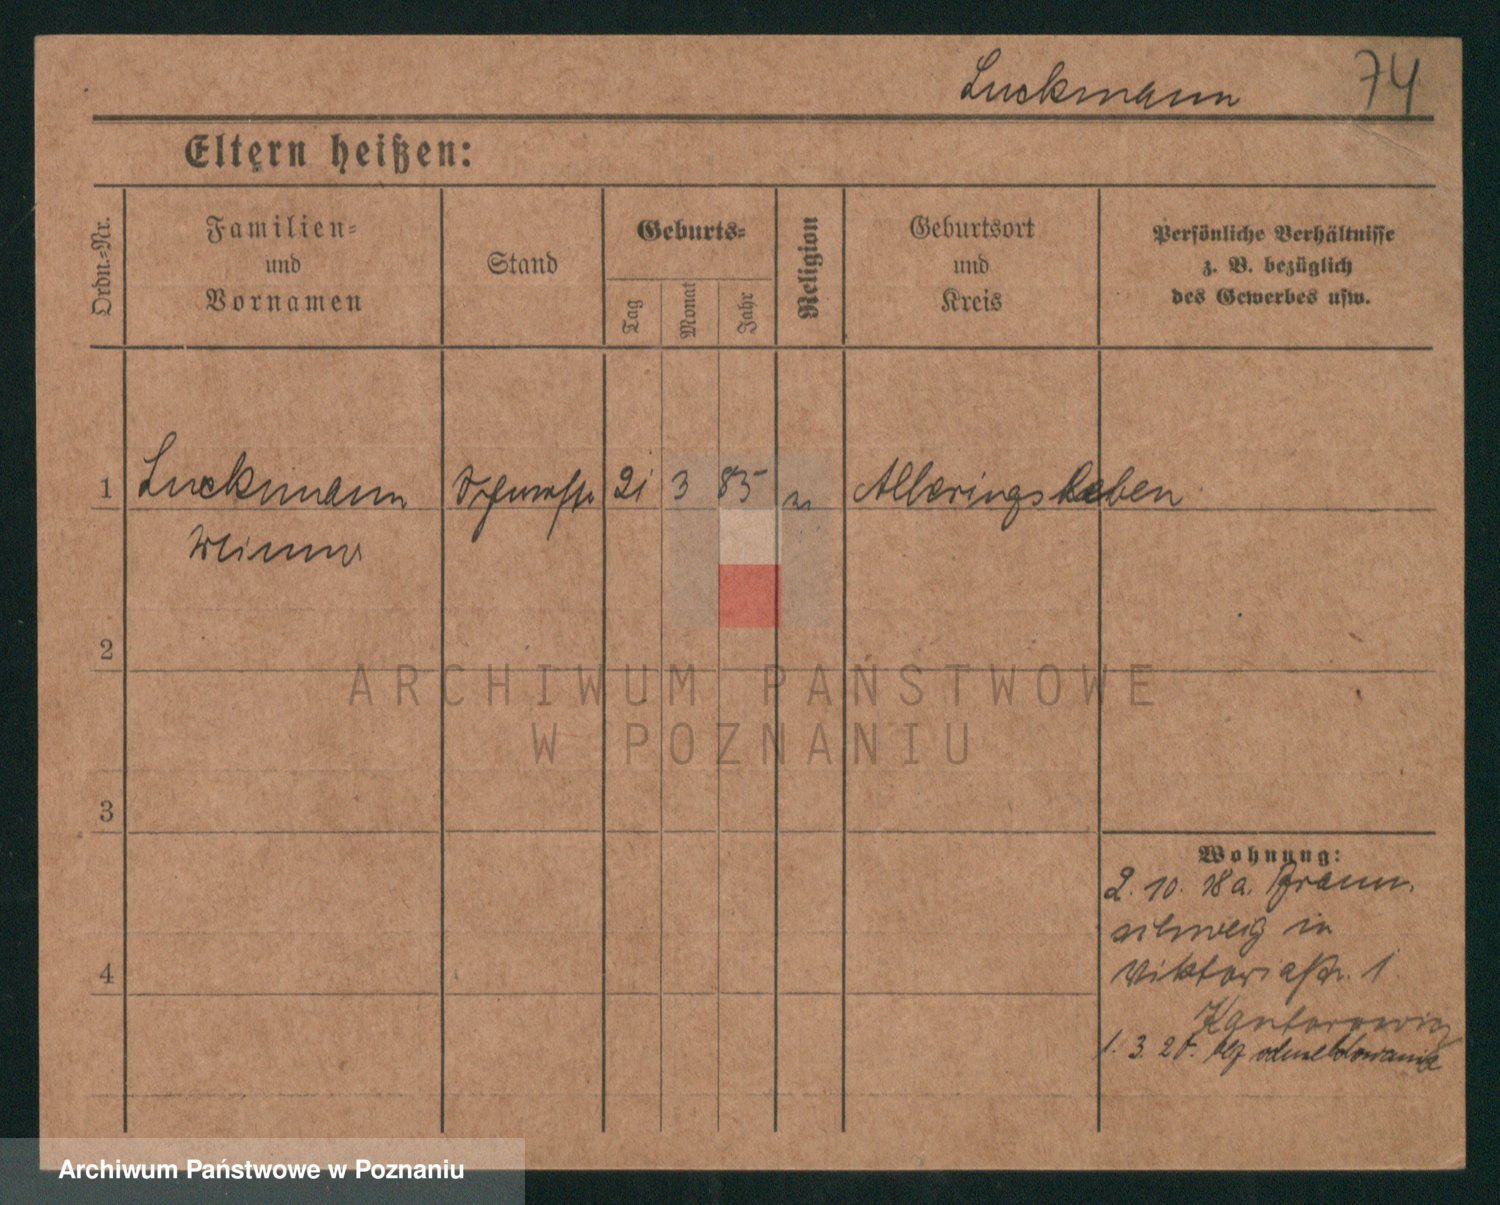 Luckmann 74
Eltern heißen:
Ordn.=Nr.
Familien=
und
Vornamen
Stand
Geburts=
Tag
Monat
Jahr
Religion
Geburtsort
und
Kreis
Persönliche Verhältnisse
z. B. bezüglich
des Gewerbes usw.
1 Luckmann 21 3 85 Alleringsleben
2
3
4
Wohnung:
2. 10. 18 a. Braun-
schweig in
Viktoriastr. 1
Kantorowicz
1. 3. 20. bez odmeldowania
ARCHIWUM PAŃSTWOWE
W POZNANIU
Archiwum Państwowe w Poznaniu